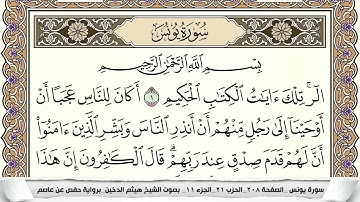 سُورَةُ يُونُسَ
بِسْمِ اللَّهِ الرَّحْمَٰنِ الرَّحِيمِ
الٓرۚ تِلْكَ ءَايَٰتُ الْكِتَٰبِ الْحَكِيمِ ١ أَكَانَ لِلنَّاسِ عَجَبًا أَنْ
أَوْحَيْنَآ إِلَىٰ رَجُلٍ مِّنْهُمْ أَنْ أَنذِرِ النَّاسَ وَبَشِّرِ الَّذِينَ ءَامَنُوٓا۟
أَنَّ لَهُمْ قَدَمَ صِدْقٍ عِندَ رَبِّهِمْۗ قَالَ الْكَٰفِرُونَ إِنَّ هَٰذَا
سورة يونس _ الصفحة ٢٠٨_ الحزب ٢١_ الجزء ١١ _ بصوت الشيخ هيثم الدخين_ برواية حفص عن عاصم